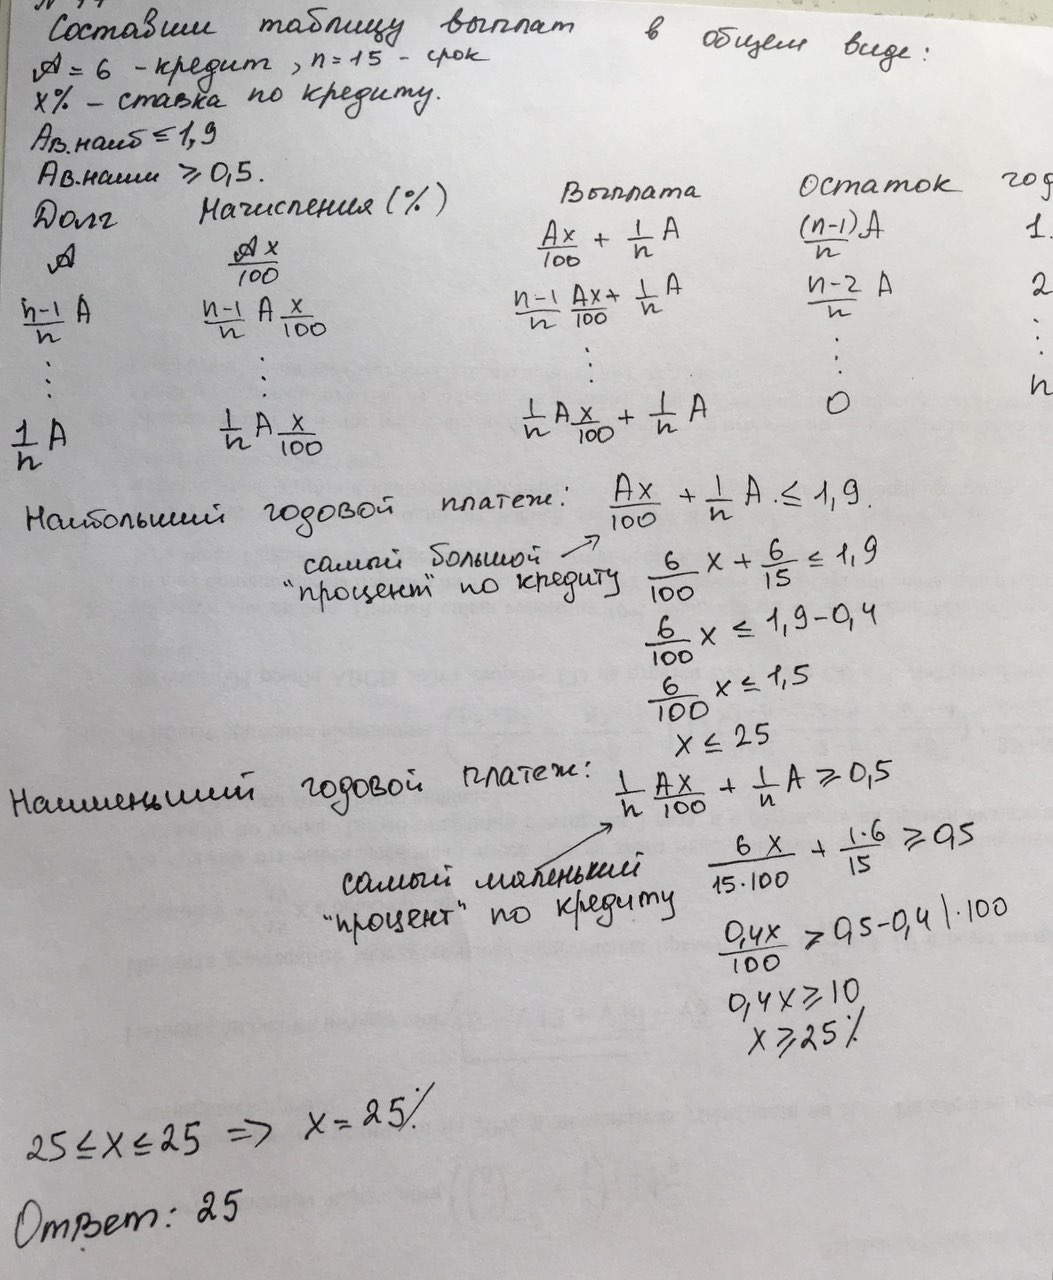 Составим таблицу выплат в общем виде:
A = 6 - кредит, n = 15 - срок
x% - ставка по кредиту.
Aв.наиб ≤ 1,9
Aв.наим ≥ 0,5.
Долг Начисления (%) Выплата Остаток год
A Ax/100 Ax/100 + 1/n A (n-1)/n A 1.
n-1/n A n-1/n A x/100 n-1/n Ax/100 + 1/n A n-2/n A 2
⋮ ⋮ ⋮ ⋮ ⋮
1/n A 1/n A x/100 1/n A x/100 + 1/n A 0 n
Наибольший годовой платеж: Ax/100 + 1/n A ≤ 1,9.
самый большой
"процент" по кредиту 6/100 x + 6/15 ≤ 1,9
6/100 x ≤ 1,9 - 0,4
6/100 x ≤ 1,5
x ≤ 25
Наименьший годовой платеж: 1/n Ax/100 + 1/n A ≥ 0,5
6x/15·100 + 1·6/15 ≥ 0,5
самый маленький
"процент" по кредиту
0,4x/100 ≥ 0,5 - 0,4 | ·100
0,4x ≥ 10
x ≥ 25%
25 ≤ x ≤ 25 => x = 25%
Ответ: 25